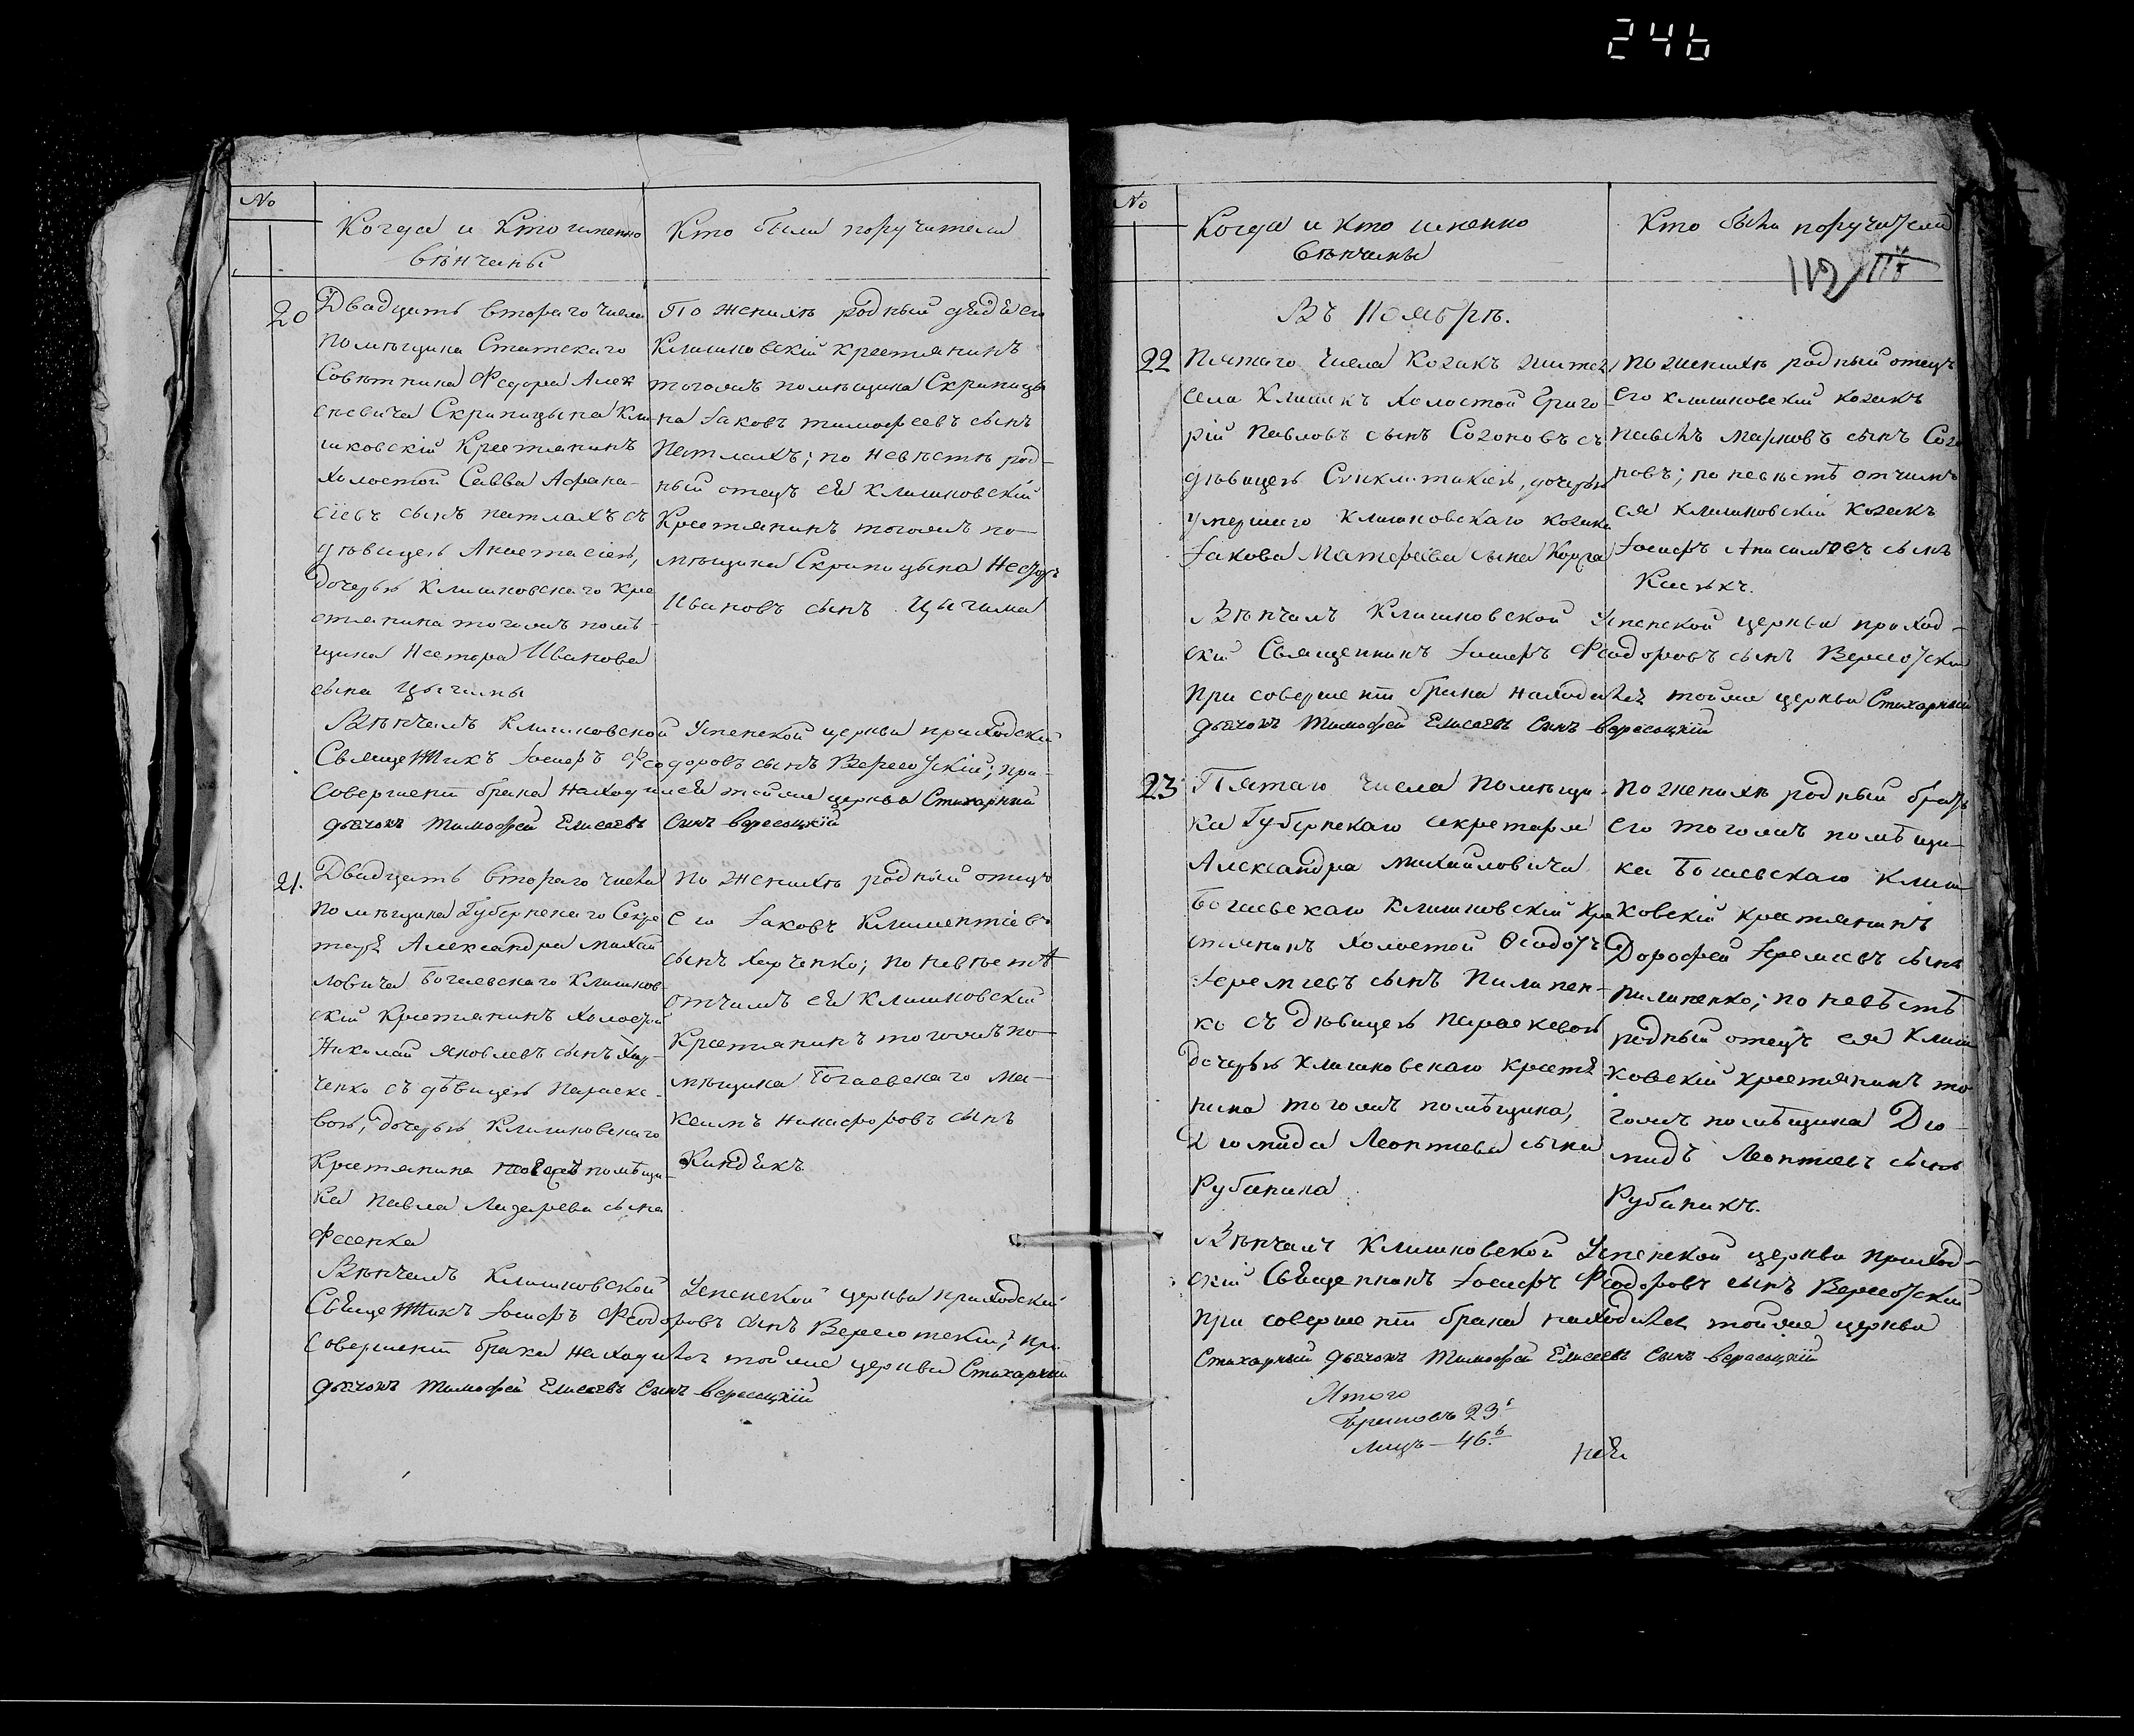 246
№
Когда и Кто именно
вѣнчаны
Кто были поручители
20
Двадцать втораго числа
помѣщика Статскаго
Совѣтника Федора Алек
сѣевича Скрипицына Кли-
шковскій Крестьянинъ
Холостой Савва Афана-
сіевъ сынъ петлахъ съ
дѣвицею Анастасіею,
дочерью Клишковскаго Кре
стьянина тогожъ помѣ-
щика Нестора Иванова
сына Цыгины
По женихѣ родный дядя его
Клишковскій крестьянинъ
тогожъ помѣщика Скрипицы
на Іаковъ тимофеевъ сынъ
Петлахъ; по невѣстѣ род-
ный отецъ ея Клишковскій
Крестьянинъ тогожъ по-
мѣщика Скрипицына Несторъ
Ивановъ сынъ Цыгина
Вѣнчалъ Клишковской Успенской церкви приходскій
Священникъ Іосифъ Феодоровъ сынъ Вересоцкій; при-
совершеніи брака находился тойже церкви Стихарный
дьячокъ Тимофей Елисеевъ Сынъ вересоцкій
21.
Двадцать втораго числа
помѣщика Губернскаго Секре
таря Александра михай
ловича Богаевскаго Клишков
скій Крестьянинъ Холостой
Николай яковлевъ сынъ Хар-
ченко съ дѣвицею Параске-
вою, дочерью Клишковскаго
Крестьянина тогожъ помѣщи-
ка павла Лазарева сына
Фесенка
по женихѣ родный отецъ
его Іаковъ Климентіевъ
сынъ Харченко; по невѣстѣ
отчимъ ея Клишковскій
Крестьянинъ тогожъ по-
мѣщика Богаевскаго Ма-
ксимъ никифоровъ сынъ
Киндякъ
Вѣнчалъ Клишковской Успенской церкви приходскій
Священникъ Іосифъ Феодоровъ сынъ Вересотскій; при
совершеніи брака находился тойже церкви Стихарный
дьячокъ Тимофей Елисеевъ Сынъ вересоцкій
№
Когда и кто именно
вѣнчаны
Кто были поручители
112
Въ Ноябрѣ.
22
Пятаго числа Козакъ жител
села Клишекъ Холостой Григо-
рій Павловъ сынъ Созоновъ съ
дѣвицею Синклитикіею, дочерью
умершаго Клишковскаго козака
Іакова Матфеева сына
по женихѣ родный отецъ
его клишковскій козакъ
павелъ марковъ сынъ Созо
новъ; по невѣстѣ отчимъ
ея клишковскій козакъ
Іосифъ Анисимовъ сынъ
Вѣнчалъ Клишковской Успенской церкви приход-
скій Священникъ Іосифъ Феодоровъ сынъ Вересотскій
при совершеніи брака находился тойже церкви Стихарный
дьячокъ Тимофей Елисеевъ Сынъ вересоцкій
23
Пятаго числа помѣщи-
ка Губернскаго секретаря
Александра михайловича
Богаевскаго Клишковскій Кре
стьянинъ холостой Ѳеодотъ
Іереміевъ сынъ Пилипен-
ко съ дѣвицею параскевою
дочерью клишковскаго крестья
нина тогожъ помѣщика,
Діомида Леонтиева сына
Рубаника
по женихѣ родный братъ
его тогожъ помѣщи-
ка Богаевскаго клиш
ковскій крестьянинъ
Дорофей Іереміевъ сынъ
пилипенко; по невѣстѣ
родный отецъ ея клиш
ковскій крестьянинъ то
гожъ помѣщика Діо-
мидъ Леонтиевъ сынъ
Рубаникъ.
Вѣнчалъ Клишковской Успенской церкви приход-
скій Священникъ Іосифъ Феодоровъ сынъ Вересотскій
при совершеніи брака находился тойже церкви
Стихарный дьячокъ Тимофей Елисеевъ Сынъ вересоцкій
Итого
браковъ 23
лицъ – 46